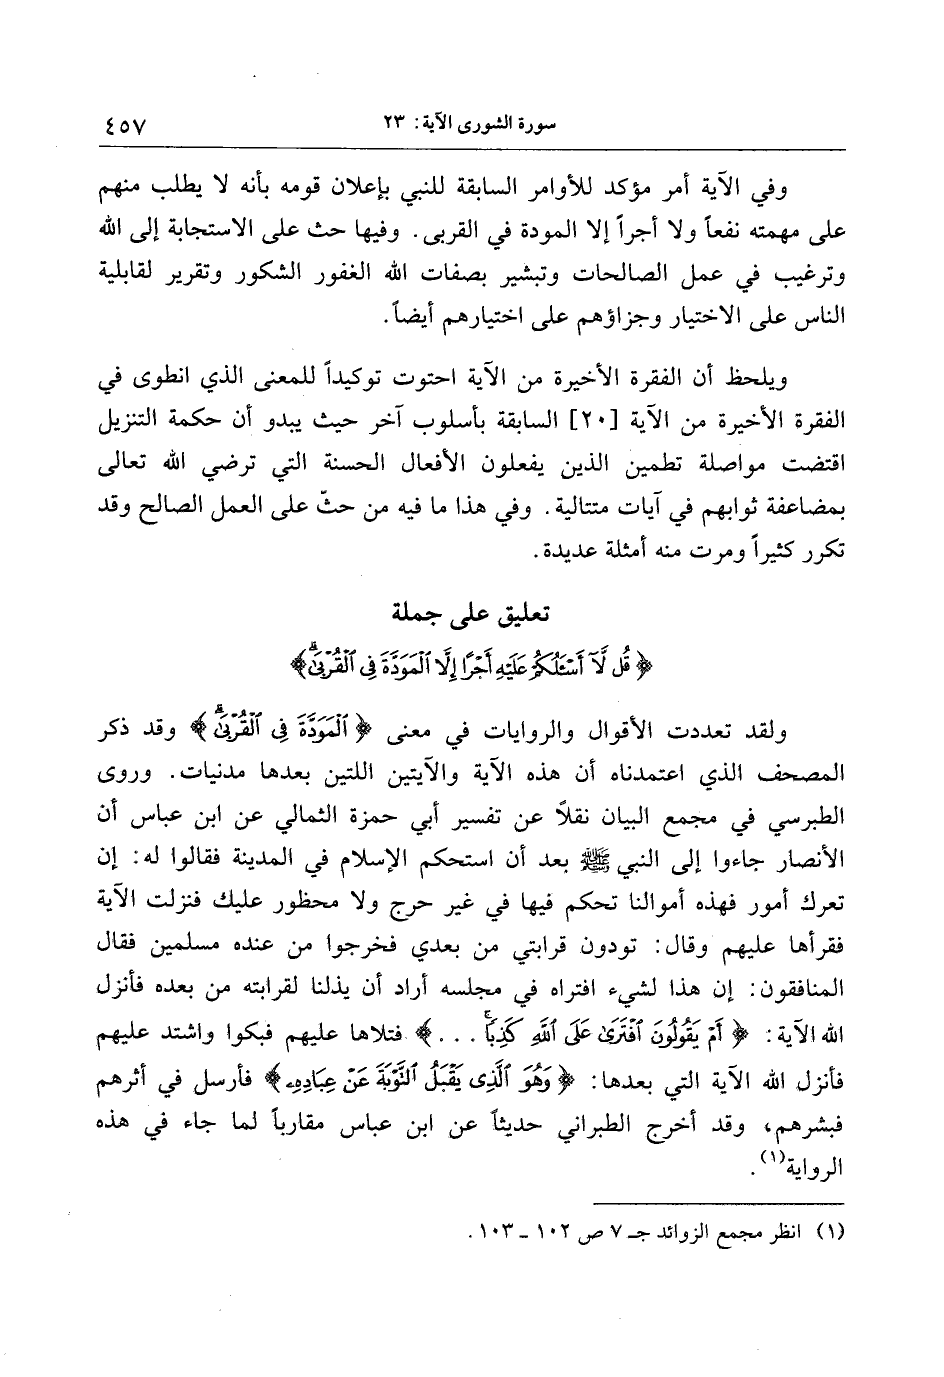 سورة الشورى الآية: ٢٣
٤٥٧
وفي الآية أمر مؤكد للأوامر السابقة للنبي بإعلان قومه بأنه لا يطلب منهم
على مهمته نفعاً ولا أجراً إلا المودة في القربى. وفيها حث على الاستجابة إلى الله
وترغيب في عمل الصالحات وتبشير بصفات الله الغفور الشكور وتقرير لقابلية
الناس على الاختيار وجزاؤهم على اختيارهم أيضاً.
ويلحظ أن الفقرة الأخيرة من الآية احتوت توكيداً للمعنى الذي انطوى في
الفقرة الأخيرة من الآية [٢٠] السابقة بأسلوب آخر حيث يبدو أن حكمة التنزيل
اقتضت مواصلة تطمين الذين يفعلون الأفعال الحسنة التي ترضي الله تعالى
بمضاعفة ثوابهم في آيات متتالية. وفي هذا ما فيه من حثّ على العمل الصالح وقد
تكرر كثيراً ومرت منه أمثلة عديدة.
تعليق على جملة
﴿ قُل لَّآ أَسْـَٔلُكُمْ عَلَيْهِ أَجْرًا إِلَّا ٱلْمَوَدَّةَ فِى ٱلْقُرْبَىٰۗ ﴾
ولقد تعددت الأقوال والروايات في معنى ﴿ ٱلْمَوَدَّةَ فِى ٱلْقُرْبَىٰۗ ﴾ وقد ذكر
المصحف الذي اعتمدناه أن هذه الآية والآيتين اللتين بعدها مدنيات. وروى
الطبرسي في مجمع البيان نقلاً عن تفسير أبي حمزة الثمالي عن ابن عباس أن
الأنصار جاءوا إلى النبي ﷺ بعد أن استحكم الإسلام في المدينة فقالوا له: إن
تعرك أمور فهذه أموالنا تحكم فيها في غير حرج ولا محظور عليك فنزلت الآية
فقرأها عليهم وقال: تودون قرابتي من بعدي فخرجوا من عنده مسلمين فقال
المنافقون: إن هذا لشيء افتراه في مجلسه أراد أن يذلنا لقرابته من بعده فأنزل
الله الآية: ﴿ أَمْ يَقُولُونَ ٱفْتَرَىٰ عَلَى ٱللَّهِ كَذِبًاۖ . . . ﴾ فتلاها عليهم فبكوا واشتد عليهم
فأنزل الله الآية التي بعدها: ﴿ وَهُوَ ٱلَّذِى يَقْبَلُ ٱلتَّوْبَةَ عَنْ عِبَادِهِۦ ﴾ فأرسل في أثرهم
فبشرهم، وقد أخرج الطبراني حديثاً عن ابن عباس مقارباً لما جاء في هذه
الرواية(١).
(١) انظر مجمع الزوائد جـ ٧ ص ١٠٢ ـ ١٠٣.